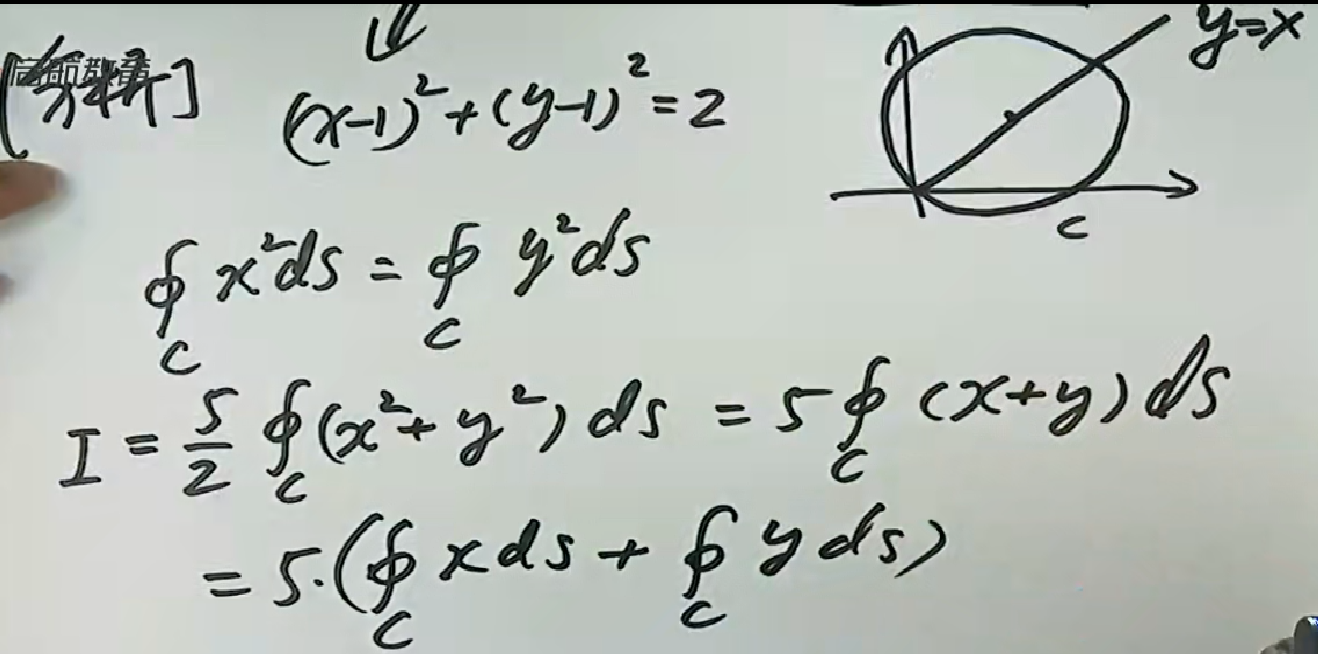 [分析] (x-1)²+(y-1)²=2
y=x
C
∮_C x²ds = ∮_C y²ds
I = 5/2 ∮_C (x²+y²) ds = 5∮_C (x+y) ds
= 5·(∮_C x ds + ∮_C y ds)